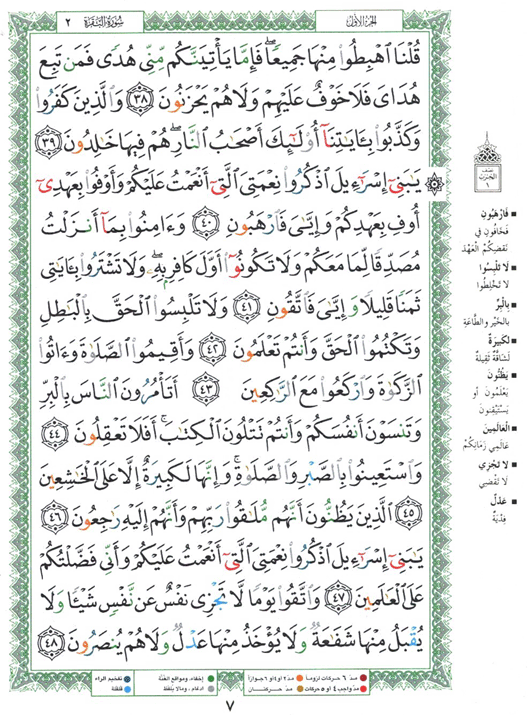 الجزء الأول
سورة البقرة ٢
قُلْنَا ٱهْبِطُوا۟ مِنْهَا جَمِيعًۭا ۖ فَإِمَّا يَأْتِيَنَّكُم مِّنِّى هُدًۭى فَمَن تَبِعَ
هُدَاىَ فَلَا خَوْفٌ عَلَيْهِمْ وَلَا هُمْ يَحْزَنُونَ ٣٨ وَٱلَّذِينَ كَفَرُوا۟
وَكَذَّبُوا۟ بِـَٔايَـٰتِنَآ أُو۟لَـٰٓئِكَ أَصْحَـٰبُ ٱلنَّارِ ۖ هُمْ فِيهَا خَـٰلِدُونَ ٣٩
يَـٰبَنِىٓ إِسْرَٰٓءِيلَ ٱذْكُرُوا۟ نِعْمَتِىَ ٱلَّتِىٓ أَنْعَمْتُ عَلَيْكُمْ وَأَوْفُوا۟ بِعَهْدِىٓ
أُوفِ بِعَهْدِكُمْ وَإِيَّـٰىَ فَٱرْهَبُونِ ٤٠ وَءَامِنُوا۟ بِمَآ أَنزَلْتُ
مُصَدِّقًۭا لِّمَا مَعَكُمْ وَلَا تَكُونُوٓا۟ أَوَّلَ كَافِرٍۭ بِهِۦ ۖ وَلَا تَشْتَرُوا۟ بِـَٔايَـٰتِى
ثَمَنًۭا قَلِيلًۭا وَإِيَّـٰىَ فَٱتَّقُونِ ٤١ وَلَا تَلْبِسُوا۟ ٱلْحَقَّ بِٱلْبَـٰطِلِ
وَتَكْتُمُوا۟ ٱلْحَقَّ وَأَنتُمْ تَعْلَمُونَ ٤٢ وَأَقِيمُوا۟ ٱلصَّلَوٰةَ وَءَاتُوا۟
ٱلزَّكَوٰةَ وَٱرْكَعُوا۟ مَعَ ٱلرَّٰكِعِينَ ٤٣ أَتَأْمُرُونَ ٱلنَّاسَ بِٱلْبِرِّ
وَتَنسَوْنَ أَنفُسَكُمْ وَأَنتُمْ تَتْلُونَ ٱلْكِتَـٰبَ ۚ أَفَلَا تَعْقِلُونَ ٤٤
وَٱسْتَعِينُوا۟ بِٱلصَّبْرِ وَٱلصَّلَوٰةِ ۚ وَإِنَّهَا لَكَبِيرَةٌ إِلَّا عَلَى ٱلْخَـٰشِعِينَ
٤٥ ٱلَّذِينَ يَظُنُّونَ أَنَّهُم مُّلَـٰقُوا۟ رَبِّهِمْ وَأَنَّهُمْ إِلَيْهِ رَٰجِعُونَ ٤٦
يَـٰبَنِىٓ إِسْرَٰٓءِيلَ ٱذْكُرُوا۟ نِعْمَتِىَ ٱلَّتِىٓ أَنْعَمْتُ عَلَيْكُمْ وَأَنِّى فَضَّلْتُكُمْ
عَلَى ٱلْعَـٰلَمِينَ ٤٧ وَٱتَّقُوا۟ يَوْمًۭا لَّا تَجْزِى نَفْسٌ عَن نَّفْسٍۢ شَيْـًۭٔا وَلَا
يُقْبَلُ مِنْهَا شَفَـٰعَةٌۭ وَلَا يُؤْخَذُ مِنْهَا عَدْلٌۭ وَلَا هُمْ يُنصَرُونَ ٤٨
نصف
الحزب
١
فَارْهَبُونِ
فَخَافُونِ فِي
نَقْضِكُمُ الْعَهْدَ
لَا تَلْبِسُوا
لَا تَخْلِطُوا
بِالْبِرِّ
بِالْخَيْرِ وَالطَّاعَةِ
لَكَبِيرَةٌ
لَشَاقَّةٌ ثَقِيلَةٌ
يَظُنُّونَ
يَعْلَمُونَ أَوْ
يَسْتَيْقِنُونَ
الْعَالَمِينَ
عَالَمِي زَمَانِكُمْ
لَا تَجْزِي
لَا تَقْضِي
عَدْلٌ
فِدْيَةٌ
مد ٦ حركات لزوماً
مد ٢ أو ٤ أو ٦ جوازاً
إخفاء، ومواقع الغنة
تفخيم الراء
مد واجب ٤ أو ٥ حركات
مد حركتان
إدغام، ومالا يلفظ
قلقلة
٧